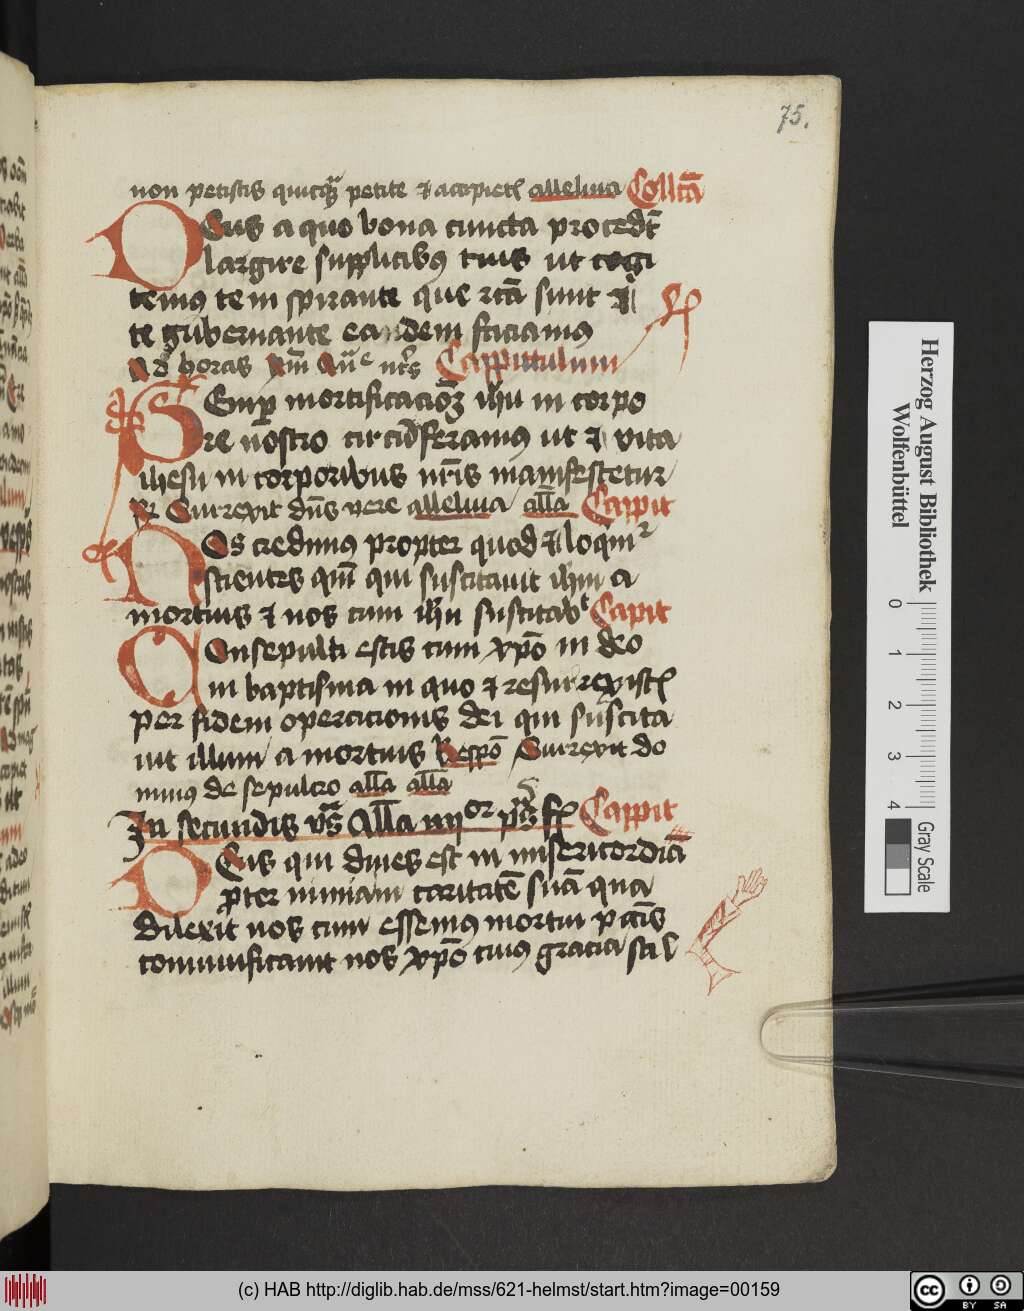 75.
non petistis quicqꝫ petite ⁊ accipietꝭ alleluia Collcā
DEus a quo bona cuncta procedūt
largire supplicibꝰ tuis ut cogi
temꝰ te in spirante que rctā sunt ⁊
te gubernante eandem faciamus
Ad horas Añ nr̄s Cappittulum
SEmꝑ mortificacioēꝫ ihū in corpo
re nostro circūferamꝰ ut ⁊ vita
ihesu in corporibus nr̄is manifestetur
Surrexit dn̄s vere alleluia all̄a Cappit
NOs credimꝰ propter quod ⁊ loqmᷣ
scientes qm̄ qui suscitauit ihm̄ a
mortuis ⁊ nos cum ihū suscitabᵗ Capit
COnsepulti estis cum xp̄o in deo
in baptisma in quo ⁊ resurrexistꝭ
per fidem operacionis dei qui suscita
uit illum a mortuis Respō Surrexit do
minus de sepulcro all̄a all̄a
In secundis vs̄ All̄a iiijor ps̄ Cappit
DEus qui diues est in misericordiā
ꝓpter nimiam caritatē suā qua
dilexit nos cum essemꝰ mortui pctīs
conuiuificauit nos xp̄o cuiꝰ gracia sal
Herzog August Bibliothek
Wolfenbüttel
0 1 2 3 4
Gray Scale
(c) HAB http://diglib.hab.de/mss/621-helmst/start.htm?image=00159
cc BY SA